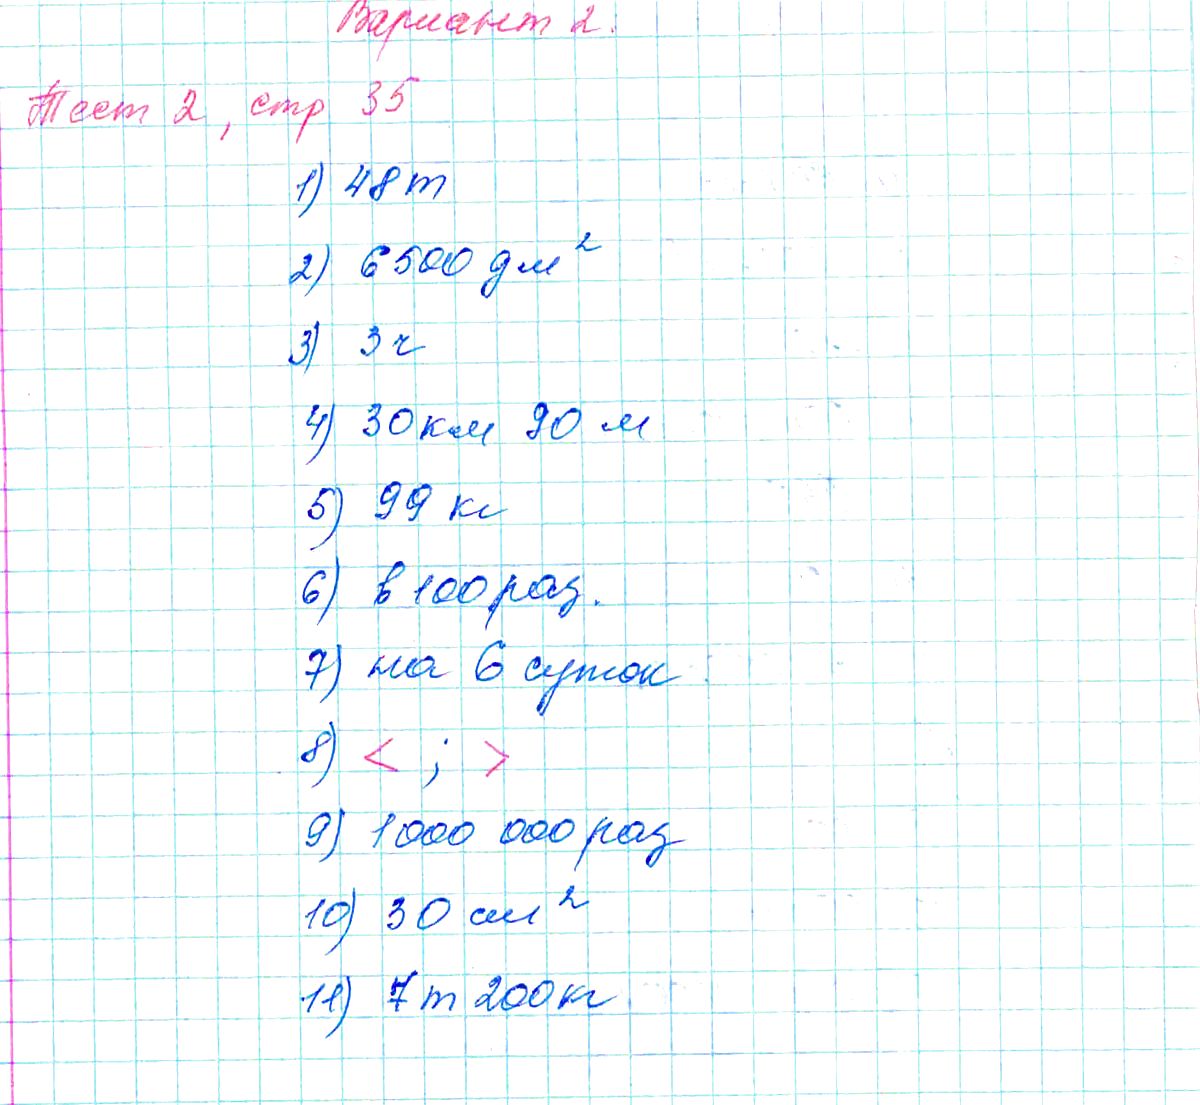 Вариант 2.
Тест 2, стр 35
1) 48 т
2) 6500 дм²
3) 3 ч
4) 30 км 90 м
5) 99 кг
6) в 100 раз.
7) на 6 суток
8) < ; >
9) 1000 000 раз
10) 30 см²
11) 7 т 200 кг